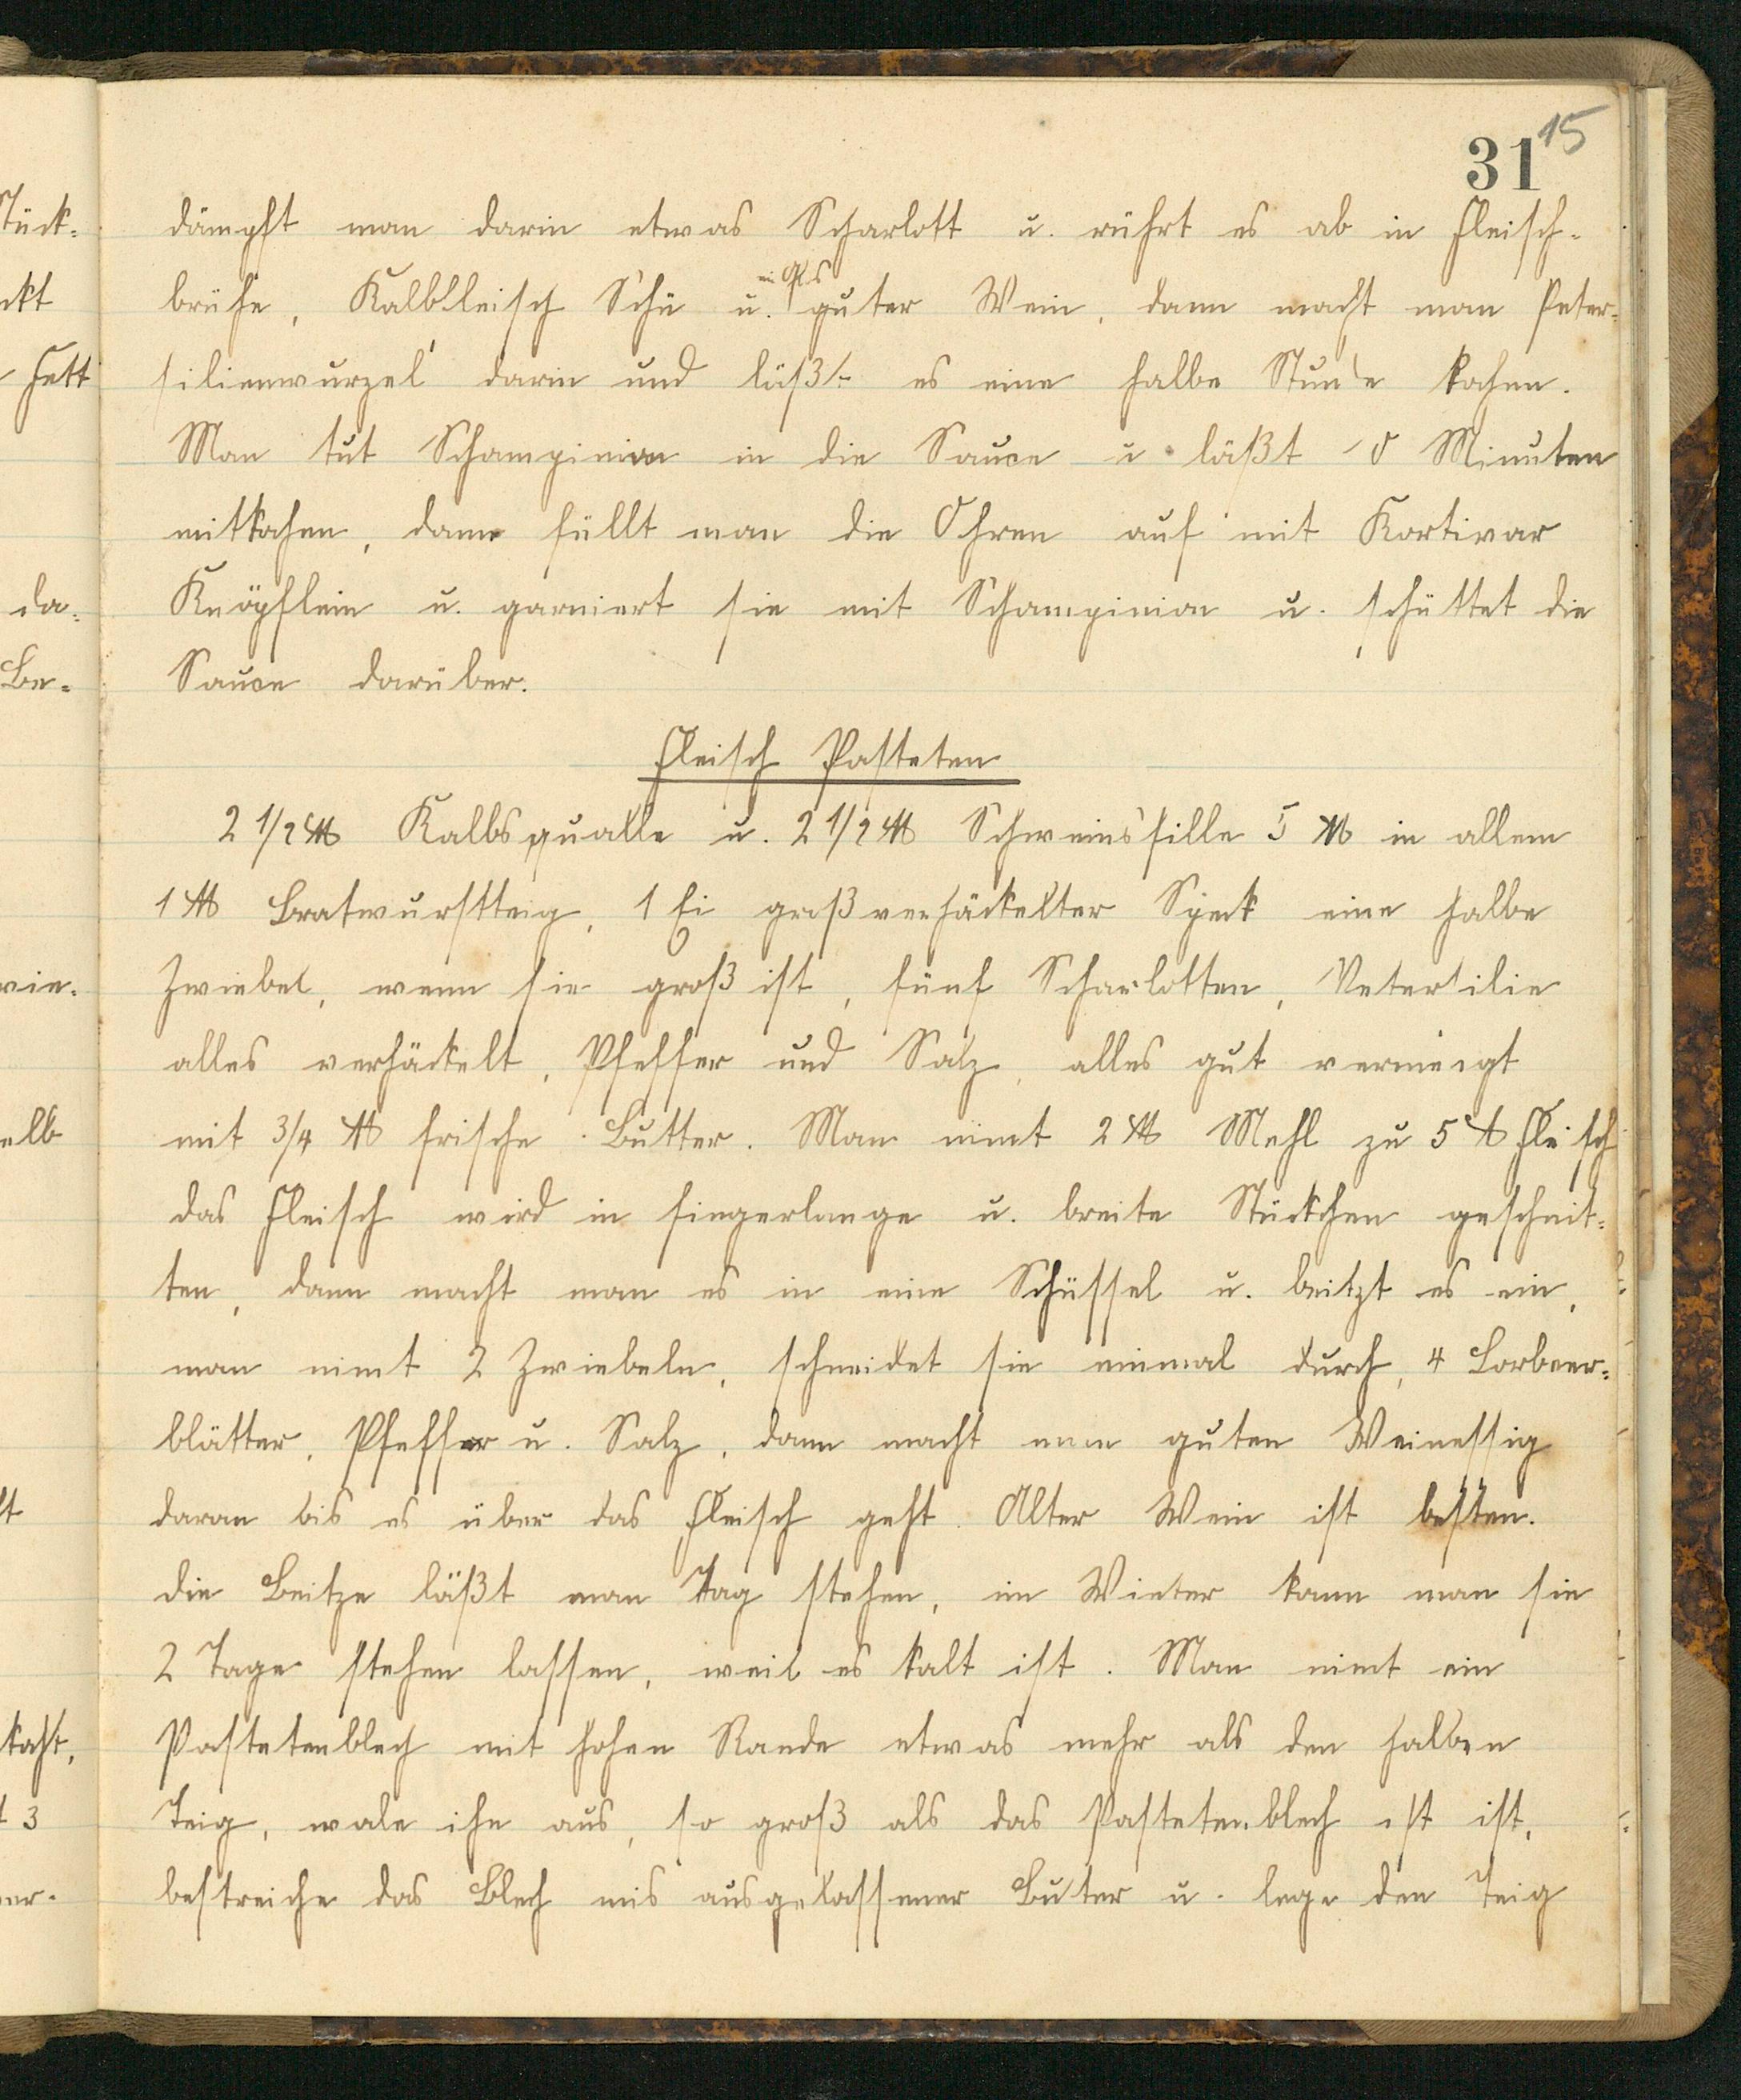 15
31
dämpft man darin etwas Scharlott u. rührt es ab in Fleisch-
brühe, Kalbfleisch Schü u. ein Gls guter Wein, dann macht man Peter-
silienwurzel darin und läßt es eine halbe Stunde kochen.
Man tut Schampinion in die Sauce u. läßt 5 Minuten
mitkochen, dann füllt man die Ohren auf mit
Knöpflein u. garniert sie mit Schampinion u. schüttet die
Sauce darüber.
Fleisch Pasteten
2 1/2 ℔ Kalbsqualle u. 2 1/2 ℔ Schweinsfille 5 ℔ in allem
1 ℔ Bratwurstteig, 1 Ei groß verhäckelter Speck eine halbe
Zwiebel, wenn sie groß ist, fünf Scharlotten, Petersilie
alles verhäckelt, Pfeffer und Salz, alles gut vermengt
mit 3/4 ℔ frische Butter. Man nimt 2 ℔ Mehl zu 5 ℔ Fleisch
das Fleisch wird in fingerlange u. breite Stückchen geschnit-
ten, dann macht man es in eine Schüssel u. beitzt es ein,
man nimt 2 Zwiebeln, schneidet sie einmal durch, 4 Lorbeer-
blätter, Pfeffer u. Salz, dann macht man guten Weinessig
daran bis es über das Fleisch geht. Alter Wein ist besten.
die Beitze läßt man Tag stehen, im Winter kann man sie
2 Tage stehen lassen, weil es kalt ist. Man nimt ein
Pastetenblech mit hohen Rande etwas mehr als den halben
Teig, wale ihn aus, so groß als das Pastetenblech ist ist,
bestreiche das Blech mis ausgelassener Buter u. lege den Teig